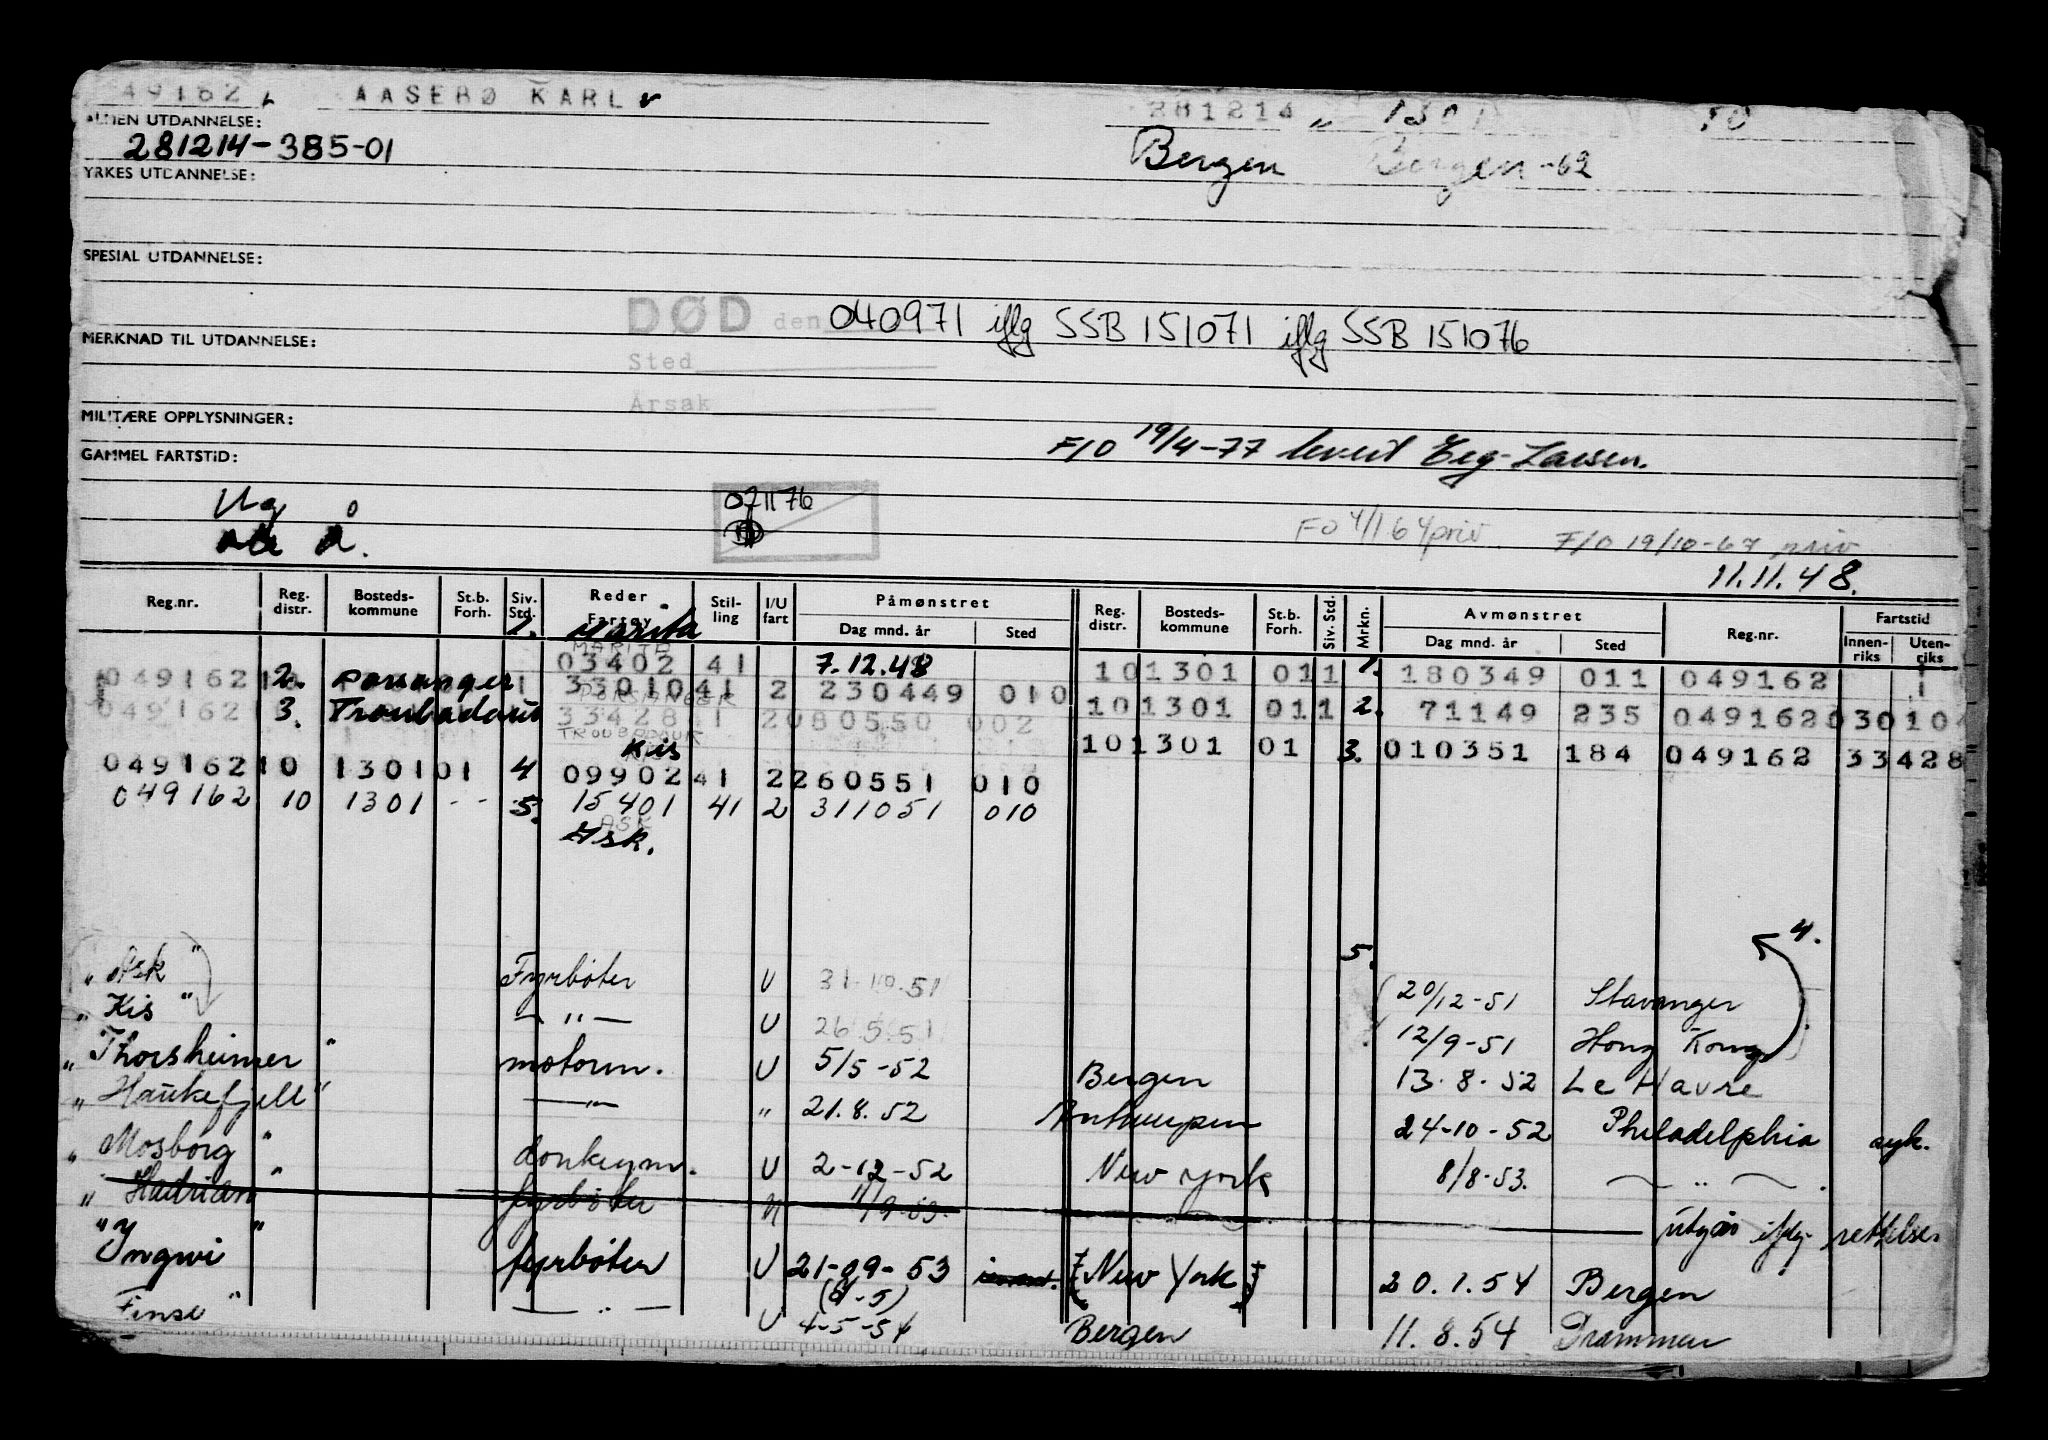 49162 AASEBØ KARL 281214
ALMEN UTDANNELSE:
281214-385-01 Bergen Bergen -62
YRKES UTDANNELSE:
SPESIAL UTDANNELSE:
DØD den 040971 iflg SSB 151071 iflg SSB 151076
MERKNAD TIL UTDANNELSE:
Sted
Årsak
MILITÆRE OPPLYSNINGER:
F/O 19/4-77 levert Eeg-Larsen.
GAMMEL FARTSTID:
071176
FO 4/1 64 priv F/O 19/10-67 priv
11.11.48.
Reg.nr. Reg. distr. Bosteds-kommune St.b. Forh. Siv. Std. Reder Fartøy Stil-ling I/U fart Påmønstret Dag mnd. år Sted Reg. distr. Bosteds-kommune St.b. Forh. Siv. Std. Mrkn. Avmønstret Dag mnd. år Sted Reg.nr. Fartstid Innen-riks Uten-riks
1. Marita
MARITA
03402 41 7.12.48 101301 011 1. 180349 011 049162
049162 10 2. Porsanger 1 33010 41 2 230449 010 101301 011 2. 71149 235 049162 030104
PORSANGER
049162 1 3. Troubadour 33428 41 2 080550 002 101301 01 3. 010351 184 049162 33428
TROUBADOUR
Kis
049162 10 1301 01 4 09902 41 2 260551 010
049162 10 1301 -- 5. 15401 41 2 311051 010
ASK
Ask.
4.
5.
" Ask " Fyrbøter U 31.10.51 20/12-51 Stavanger
" Kis " — " — U 26.5.51 12/9-51 Hong Kong
" Thorsheimer " motorm. U 5/5-52 Bergen 13.8.52 Le Havre
" Haukefjell " — " — " 21.8.52 Antwerpen 24-10-52 Philadelphia syk.
" Mosborg " donkeym. U 2-12-52 New York 8/8-53. — " — .
" Hadrian " fyrbøter 11/9-53. — " — utgår iflg. rettelse
" Yngvi " fyrbøter U 21-09-53 (New York) 20.1.54 Bergen
(8-5)
Finse " — " — U 4-5-54 Bergen 11.8.54 Drammen